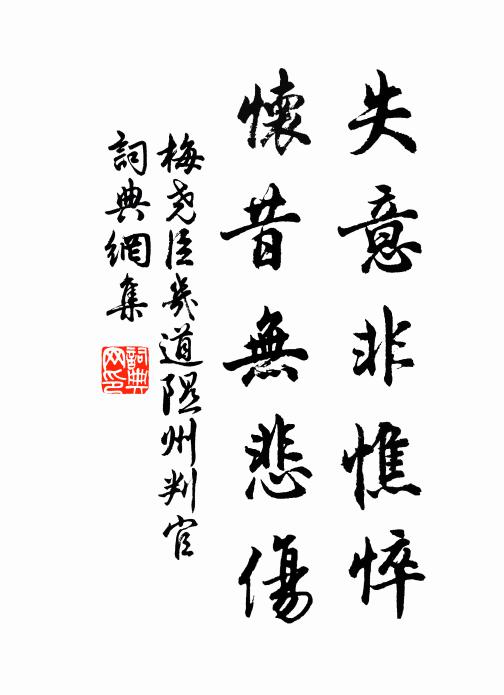 失意非憔悴
懷昔無悲傷
梅堯臣幾道隰州判官
詞典網集
詞典網印